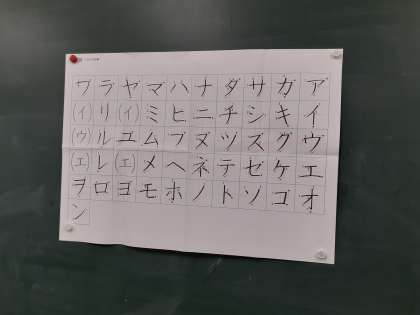 アイウエオ
カキクケコ
サシスセソ
タチツテト
ナニヌネノ
ハヒフヘホ
マミムメモ
ヤ(イ)ユ(エ)ヨ
ラリルレロ
ワ(イ)(ウ)(エ)ヲン